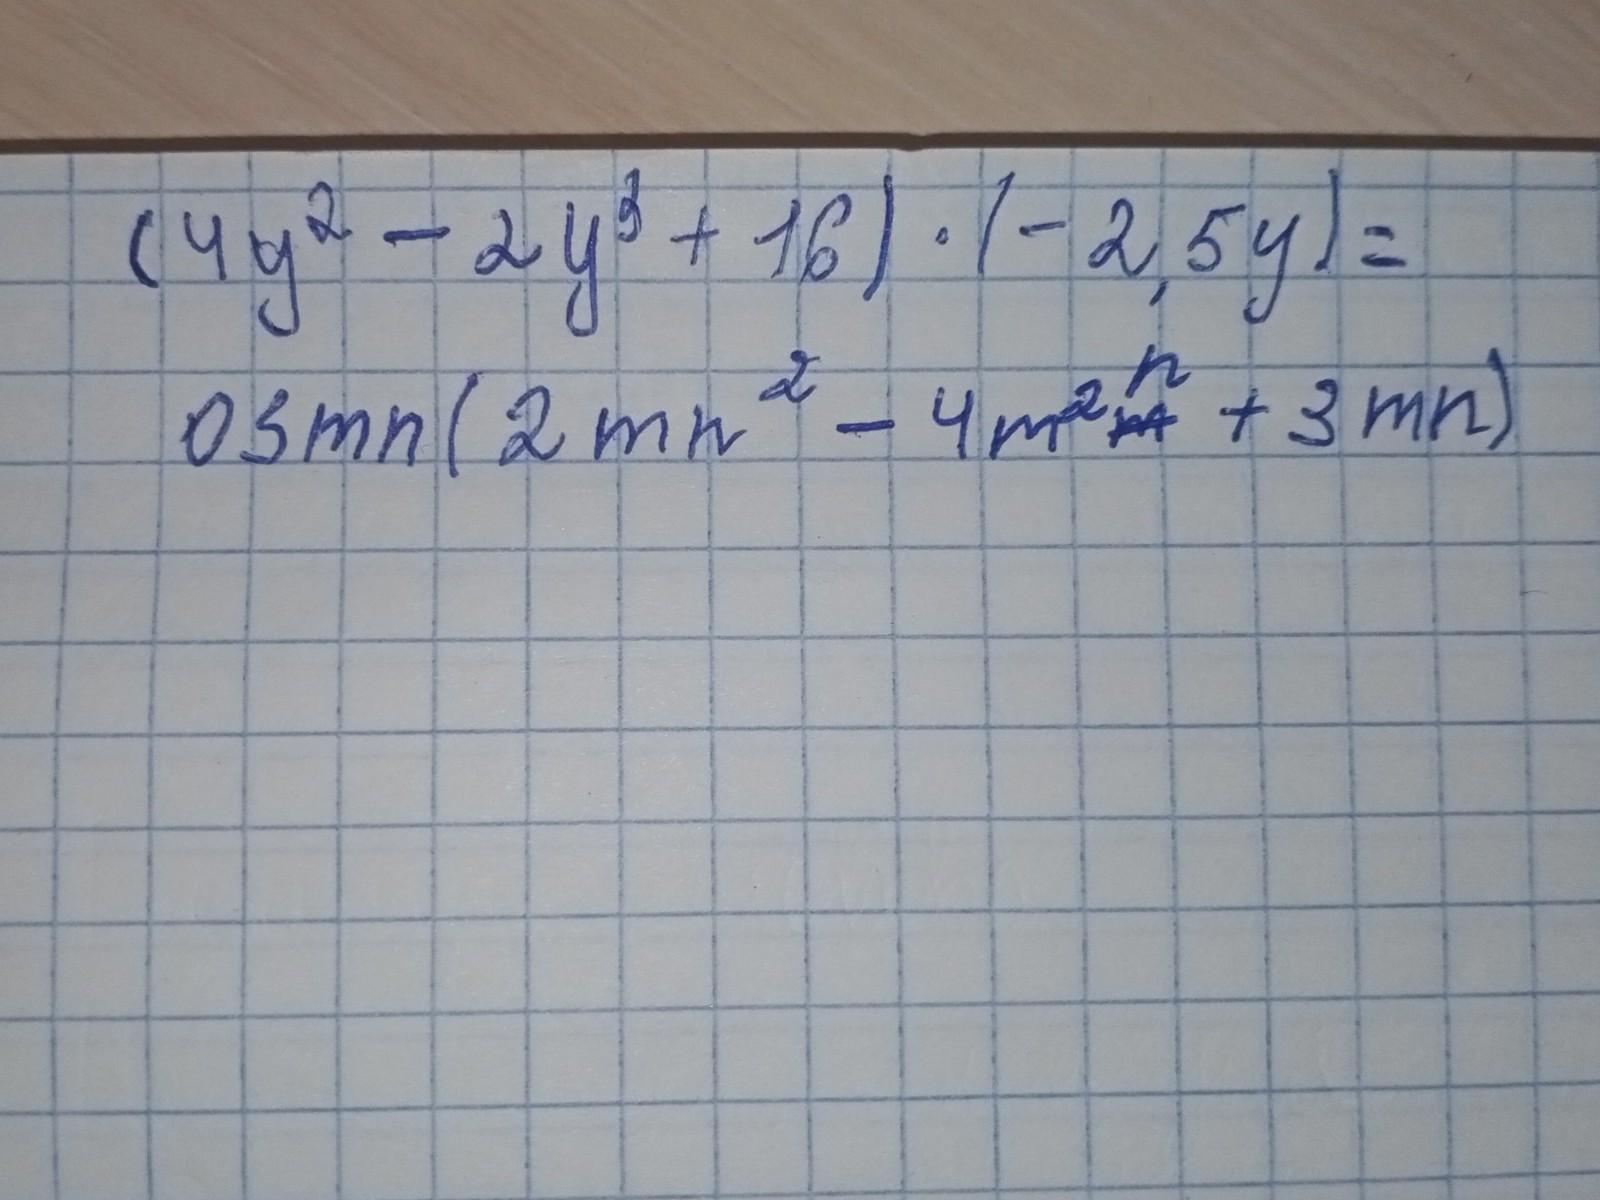 (4y² - 2y³ + 16) · (-2,5y) =
03mn(2mn² - 4m²n + 3mn)